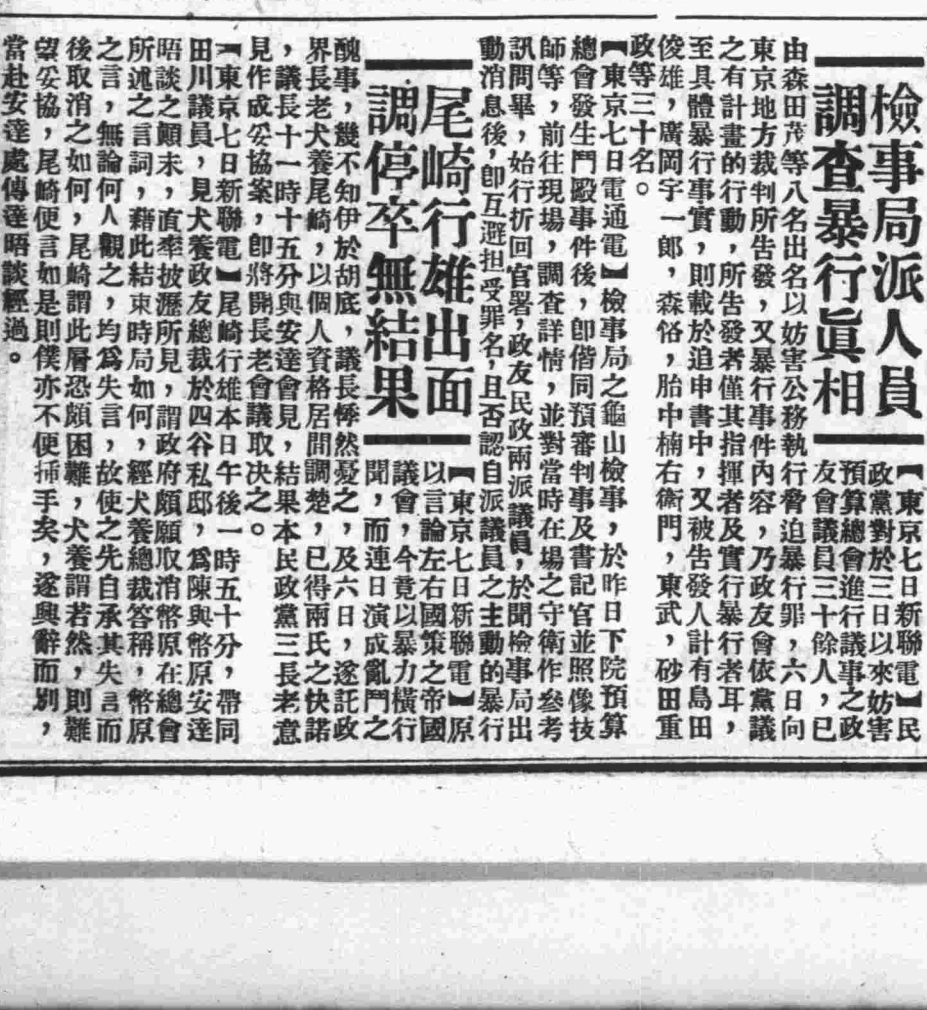 檢事局派人員
調查暴行眞相
【東京七日新聯電】民
政黨對於三日以來妨害
預算總會進行議事之政
友會議員三十餘人，已
由森田茂等八名出名以妨害公務執行脅迫暴行罪，六日向
東京地方裁判所告發，又暴行事件內容，乃政友會依黨議
之有計畫的行動，所告發者僅其指揮者及實行暴行者耳，
至具體暴行事實，則載於追申書中，又被告發人計有島田
俊雄，廣岡宇一郎，森俗，胎中楠右衛門，東武，砂田重
政等三十名。
【東京七日電通電】檢事局之龜山檢事，於昨日下院預算
總會發生鬥毆事件後，卽偕同預審判事及書記官並照像技
師等，前往現場，調查詳情，並對當時在場之守衛作參考
訊問畢，始行折回官署，政友民政兩派議員，於聞檢事局出
動消息後，卽互避担受罪名，且否認自派議員之主動的暴行
尾崎行雄出面
調停卒無結果
【東京七日新聯電】原
以言論左右國策之帝國
議會，今竟以暴力橫行
聞，而連日演成亂鬥之
醜事，幾不知伊於胡底，議長悸然憂之，及六日，遂託政
界長老犬養尾崎，以個人資格居間調楚，已得兩氏之快諾
，議長十一時十五分與安達會見，結果本民政黨三長老意
見作成妥協案，卽將開長老會議取决之。
【東京七日新聯電】尾崎行雄本日午後一時五十分，帶同
田川議員，見犬養政友總裁於四谷私邸，爲陳與幣原安達
晤談之顚末，直率披瀝所見，謂政府頗願取消幣原在總會
所述之言詞，藉此結束時局如何，經犬養總裁答稱，幣原
之言，無論何人觀之，均爲失言，故使之先自承其失言而
後取消之如何，尾崎謂此層恐頗困難，犬養謂若然，則難
望妥協，尾崎便言如是則僕亦不便揷手矣，遂興辭而別，
當赴安達處傳達晤談經過。